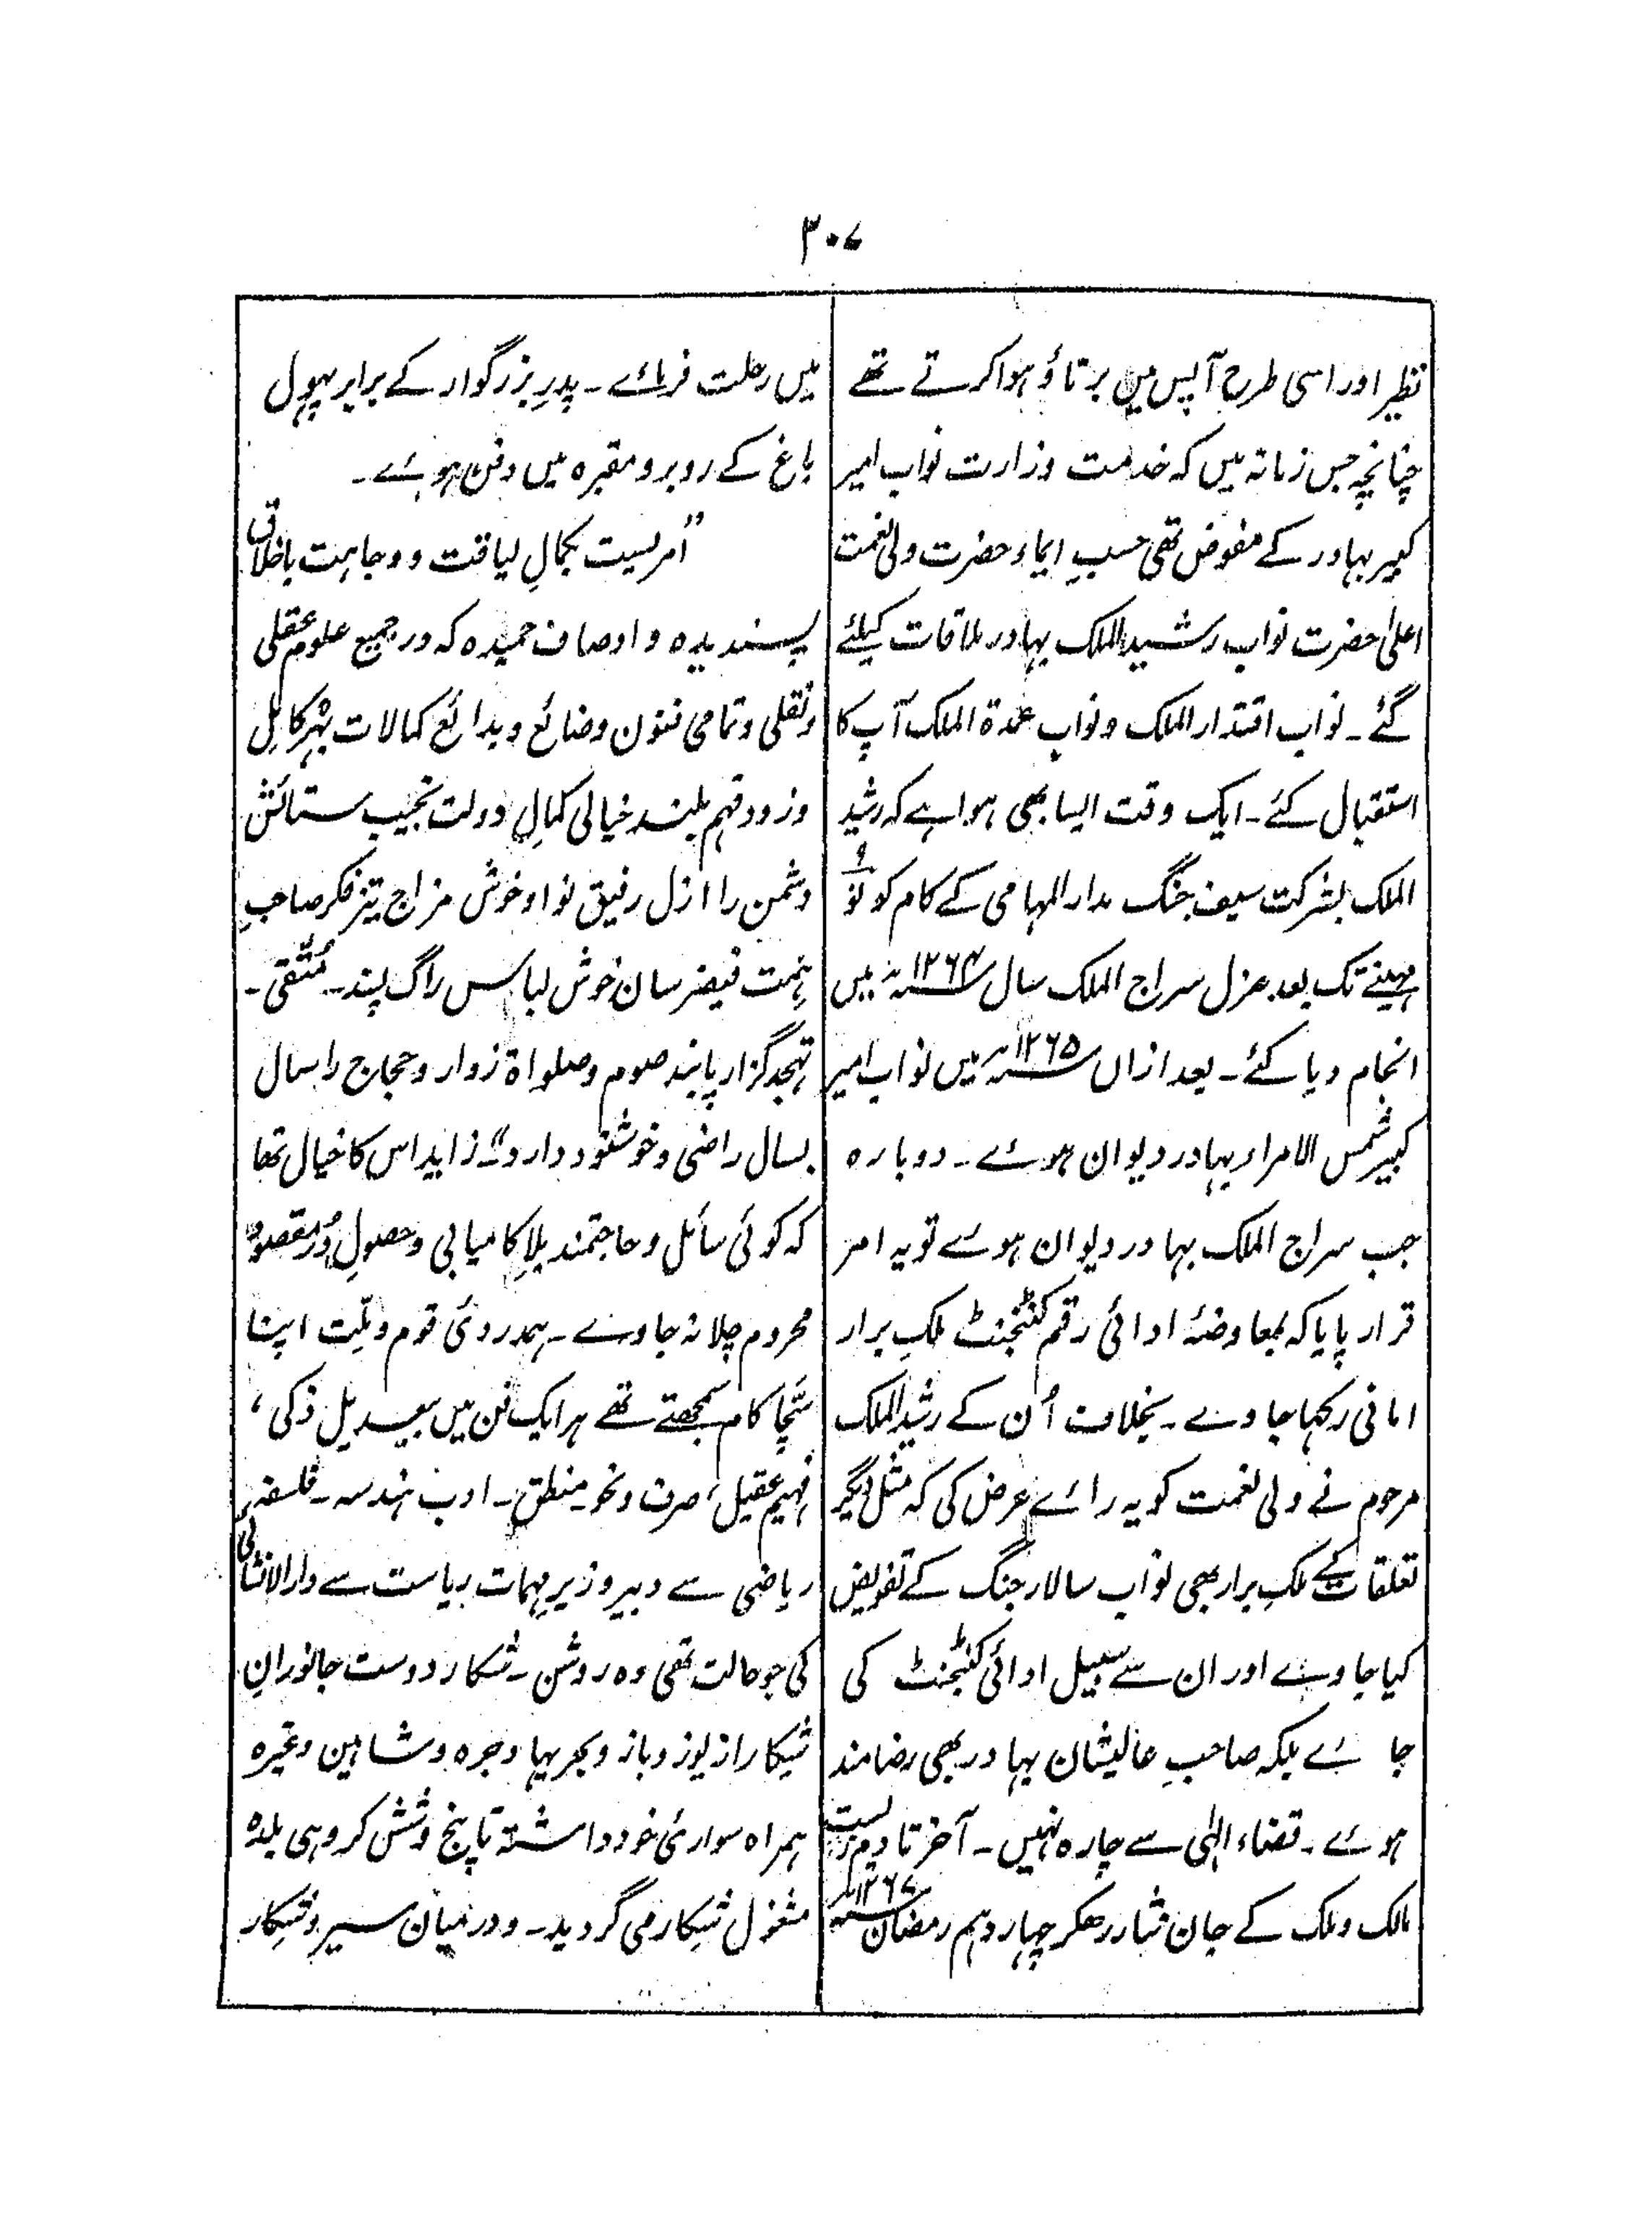 ۳۰۷
نظیر اور اسی طرح آپس میں برتاؤ ہوا کرتے تھے
چنانچہ جس زمانہ میں کہ خدمت وزارت نواب امیر
کبیر بہادر کے مفوض تھی حسبِ ایماء حضرت ولی نعمت
اعلیٰ حضرت نواب رشید الملک بہادر ملاقات کیلئے
گئے۔ نواب اقتدار الملک و نواب عمدۃ الملک آپ کا
استقبال کئے۔ ایک وقت ایسا بھی ہوا ہے کہ رشید
الملک بشرکت سیف جنگ مدار المہامی کے کام کو نو ۹
مہینے تک بعد عزل سراج الملک سال ۱۲۶۴ سنہ میں
انجام دیا کئے۔ بعد ازاں ۱۲۶۵ سنہ میں نواب امیر
کبیر شمس الامراء بہادر دیوان ہوئے۔ دوبارہ
جب سراج الملک بہادر دیوان ہوئے تو یہ امر
قرار پایا کہ بمعاوضۂ ادائی رقم کنٹنجنٹ ملکِ برار
امانی رکھا جاوے۔ بخلاف اُن کے رشید الملک
مرحوم نے ولی نعمت کو یہ رائے عرض کی کہ مثل دیگر
تعلقات کے ملکِ برار بھی نواب سالار جنگ کے تفویض
کیا جاوے اور ان سے سبیل ادائی کنٹنجنٹ کی
جائے بلکہ صاحبِ عالیشان بہادر بھی رضامند
ہوئے۔ قضاء الٰہی سے چارہ نہیں۔ آخر تا دم زیست
مالک و ملک کے جان نثار رہکر چہاردہم رمضان ۱۲۶۷ سنہ
میں رحلت فرمائے۔ پدرِ بزرگوار کے برابر پھول
باغ کے روبرو مقبرہ میں دفن ہوئے۔
”امریست بکمالِ لیاقت و وجاہت باخلاق
پسندیدہ و اوصاف حمیدہ کہ در جمیع علوم عقلی
و نقلی و تمامی فنون و ضائع و بدائع کمالات بہر کامل
و زود فہم بلند خیالی کمالِ دولت نجیب ستائش
دشمن را ازل رفیق نواو خوش مزاج تیز فکر صاحبِ
ہمت فیضرسان خوش لباس راگ پسند۔ مُتّقی۔
تہجد گزار پابند صوم و صلواۃ زوار و حجاج را سال
بسال راضی و خوشنود دارد“۔ زاید اس کا خیال تھا
کہ کوئی سائل و حاجتمند بلا کامیابی و حصولِ دُرِ مقصود
محروم چلا نہ جاوے۔ ہمدردیٔ قوم و ملّت اپنا
سچّا کام سمجھتے تھے ہر ایک فن میں بیعدیل ذکی،
فہیم عقیل، صرف و نحو۔ منطق۔ ادب ہندسہ۔ فلسفہ
ریاضی سے دبیر وزیرِ مہمات ریاست سے دار الانشائی
کی جو حالت تھی وہ روشن۔ شکار دوست جانورانِ
شکار از یوز و باز و بحر یہا و جرہ و شاہین وغیرہ
ہمراہ سواریٔ خود داشتہ تا پنج و شش کروہی بلدہ
مشغول شکار می گردید۔ و درمیان سیر و شکار